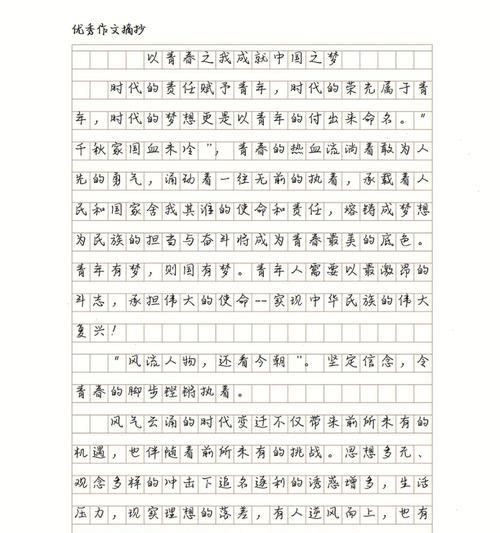 优秀作文摘抄
以青春之我成就中国之梦
时代的责任赋予青年，时代的荣光属于青
年，时代的梦想更是以青年的付出来命名。“
千秋家国血未冷”，青春的热血流淌着敢为人
先的勇气，涌动着一往无前的执着，承载着人
民和国家舍我其谁的使命和责任，熔铸成梦想
为民族的担当与奋斗将成为青春最美的底色。
青年有梦，则国有梦。青年人需要以最激昂的
斗志，承担伟大的使命--实现中华民族的伟大
复兴！
“风流人物，还看今朝”。坚定信念，令
青春的脚步铿锵执着。
风气云涌的时代变迁不仅带来前所未有的
机遇，也伴随着前所未有的挑战。思想多元、
观念多样的冲击下追名逐利的诱惑增多，生活
压力，现实理想的落差，有人逆风而上，也有